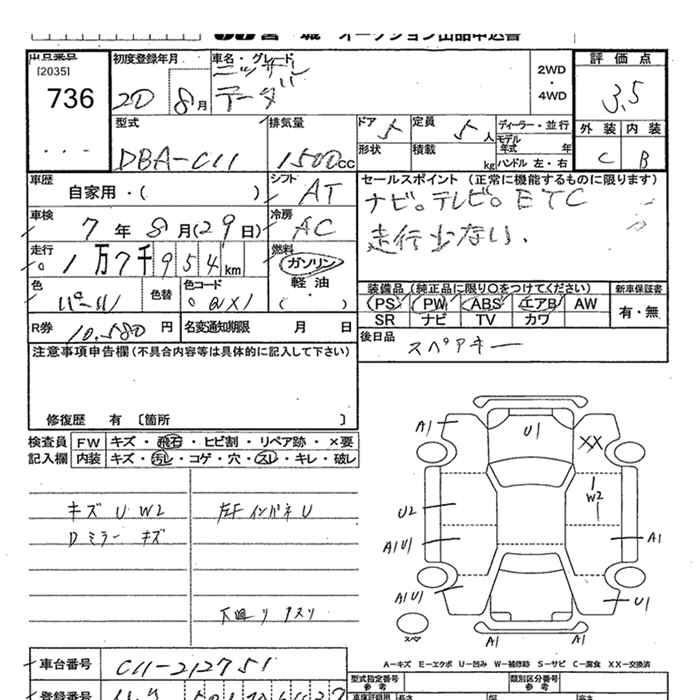 オークション出品申込書
出品番号 初度登録年月 車名・グレード 評価点
[2035] ニッサン 2WD
736 20 8月 ティーダ ・4WD 3.5
型式 排気量 ドア 定員 ディーラー・並行 外装 内装
DBA-C11 1500cc 5 5人 モデル年式 年 C B
形状 積載 kg ハンドル 左・右
車歴 シフト セールスポイント (正常に機能するものに限ります)
自家用・( ) AT ナビ。テレビ。ETC
車検 冷房 走行少ない、
7年8月(29日) AC
走行 燃料
1万7千954km ガソリン
色 色替 色コード 軽油 装備品 (純正品に限り○をつけてください) 新車保証書
パール QX1 ・( ) PS PW ABS エアB AW 有・無
SR ナビ TV カワ
R券 10,580円 名変通知期限 月 日 後日品
スペアキー
注意事項申告欄(不具合内容等は具体的に記入して下さい)
修復歴 有 〔箇所 〕
検査員 FW キズ・飛石・ヒビ割・リペア跡・×要
記入欄 内装 キズ・汚レ・コゲ・穴・スレ・キレ・破レ
キズ U W2 左F インパネ U
Dミラー キズ
下廻リ サビ
A1 U1 XX
W2
U2
A1U1 A1
A1U1 U1
スペア A1 A1
A-キズ E-エクボ U-凹み W-補修跡 S-サビ C-腐食 XX-交換済
車台番号 C11-212751 型式指定番号 参考 類別区分番号 参考
登録番号